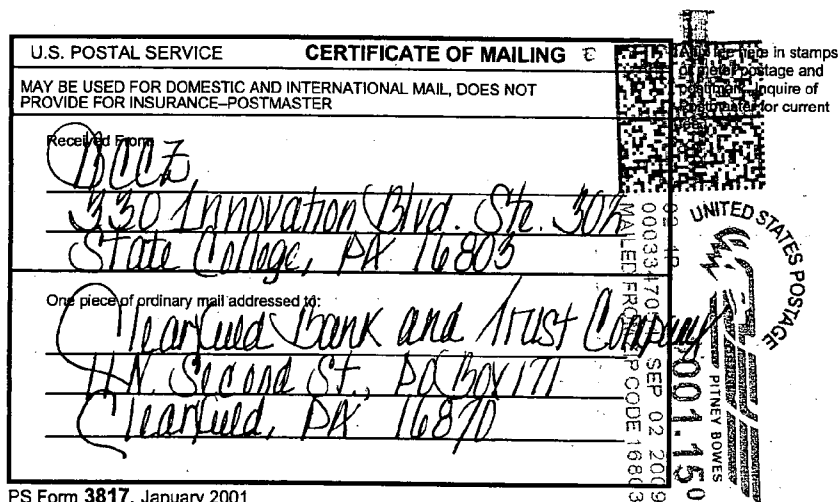 U.S. POSTAL SERVICE CERTIFICATE OF MAILING
MAY BE USED FOR DOMESTIC AND INTERNATIONAL MAIL, DOES NOT
PROVIDE FOR INSURANCE–POSTMASTER
Received From:
BCCZ
330 Innovation Blvd. Ste. 302
State College, PA 16803
One piece of ordinary mail addressed to:
Clearfield Bank and Trust Company
11 N. Second St., PO Box 171
Clearfield, PA 16870
PS Form 3817, January 2001
here in stamps
postage and
inquire of
Postmaster for current
UNITED STATES POSTAGE
PITNEY BOWES
02 1P
001.150
SEP 02 2009
MAILED FROM ZIP CODE 16803